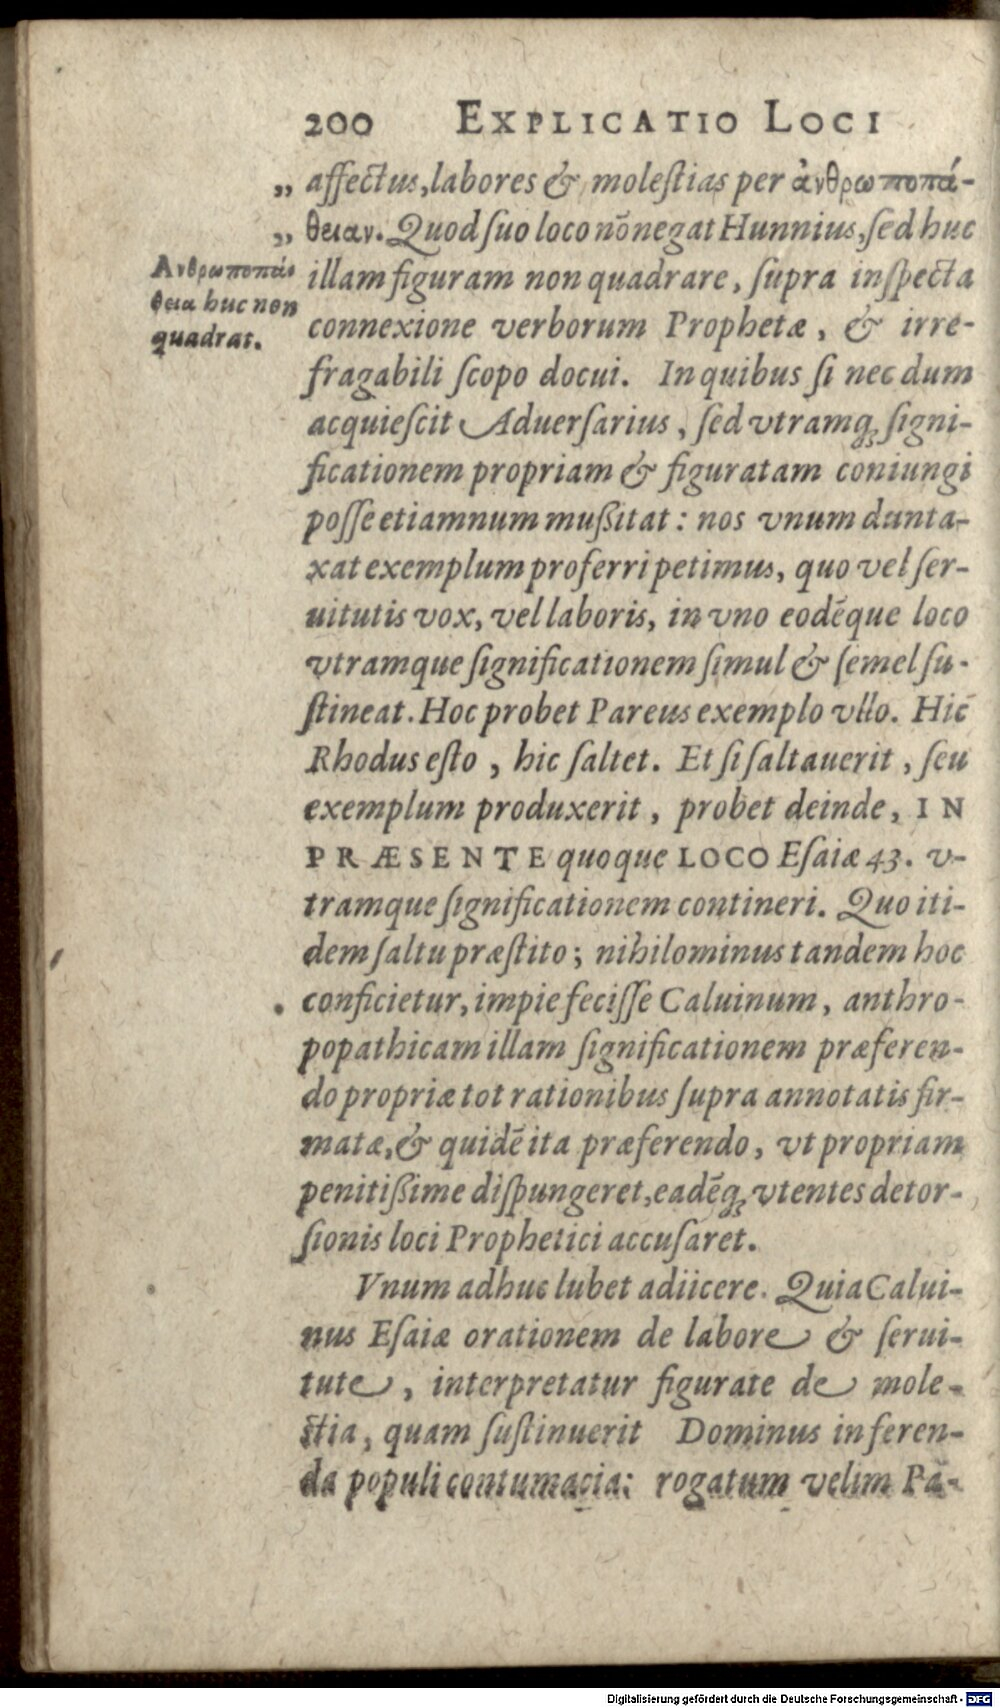 200 EXPLICATIO LOCI
„ affectus, labores & molestias per ἀνθρωποπά-
„ θειαν. Quod suo loco nō negat Hunnius, sed huc
Ανθρωποπά-
θεια huc non
quadrat.
illam figuram non quadrare, supra inspecta
connexione verborum Prophetæ, & irre-
fragabili scopo docui. In quibus si nec dum
acquiescit Aduersarius, sed vtramq; signi-
ficationem propriam & figuratam coniungi
posse etiamnum mußitat: nos vnum dunta-
xat exemplum proferri petimus, quo vel ser-
uitutis vox, vel laboris, in vno eodēque loco
vtramque significationem simul & semel su-
stineat. Hoc probet Pareus exemplo vllo. Hic
Rhodus esto, hic saltet. Et si saltauerit, seu
exemplum produxerit, probet deinde, IN
PRÆSENTE quoque LOCO Esaiæ 43. v-
tramque significationem contineri. Quo iti-
dem saltu præstito; nihilominus tandem hoc
conficietur, impie fecisse Caluinum, anthro-
popathicam illam significationem præferen-
do propriæ tot rationibus supra annotatis fir-
matæ, & quidē ita præferendo, vt propriam
penitißime dispungeret, eadēq; vtentes detor-
sionis loci Prophetici accusaret.
Vnum adhuc lubet adiicere. Quia Calui-
nus Esaiæ orationem de labore & serui-
tute, interpretatur figurate de mole-
stia, quam sustinuerit Dominus in feren-
da populi contumacia: rogatum velim Pa-
Digitalisierung gefördert durch die Deutsche Forschungsgemeinschaft - DFG